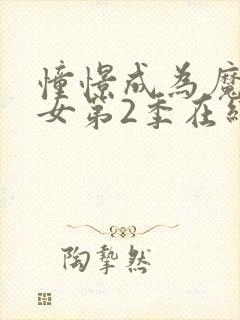 憧憬成為魔
女第2季在
陶摯然